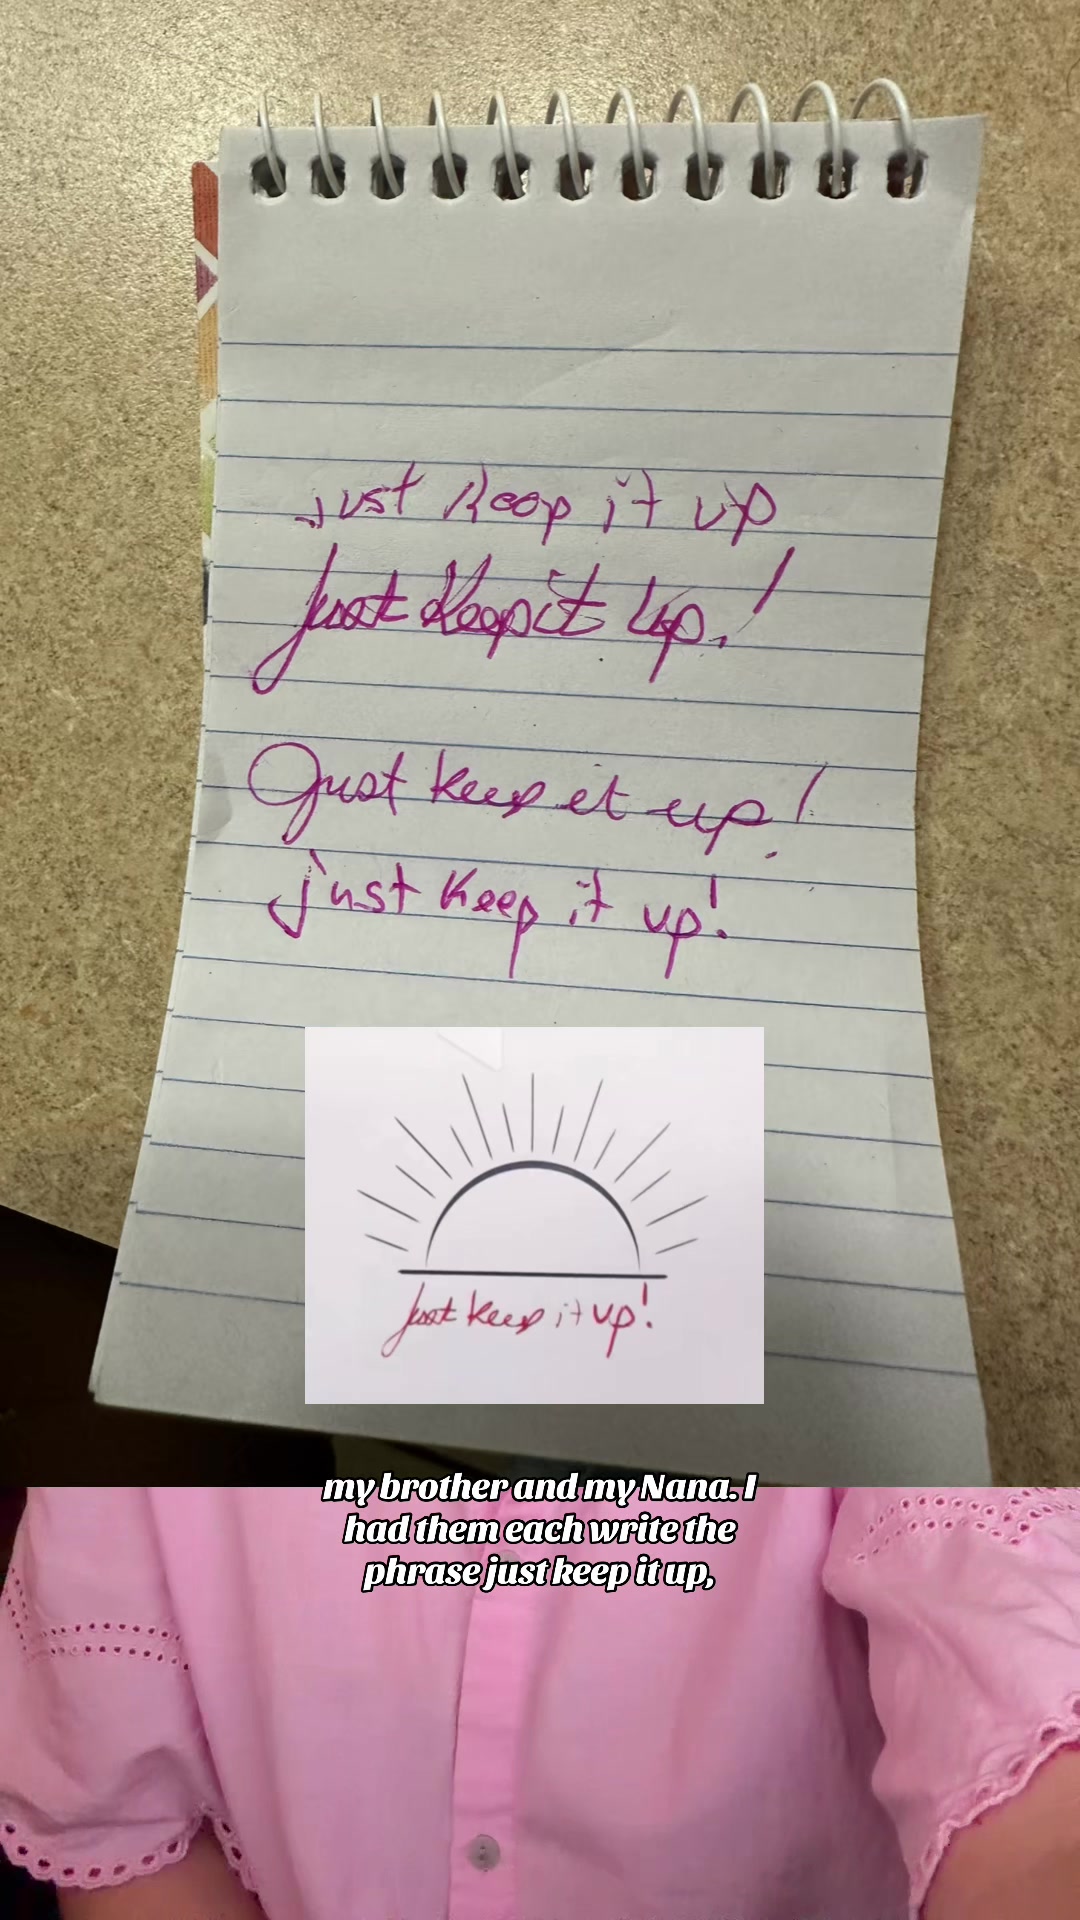 just keep it up
Just Keep it Up!
Just keep it up!
just keep it up!
Just keep it up!
my brother and my Nana. I
had them each write the
phrase just keep it up,